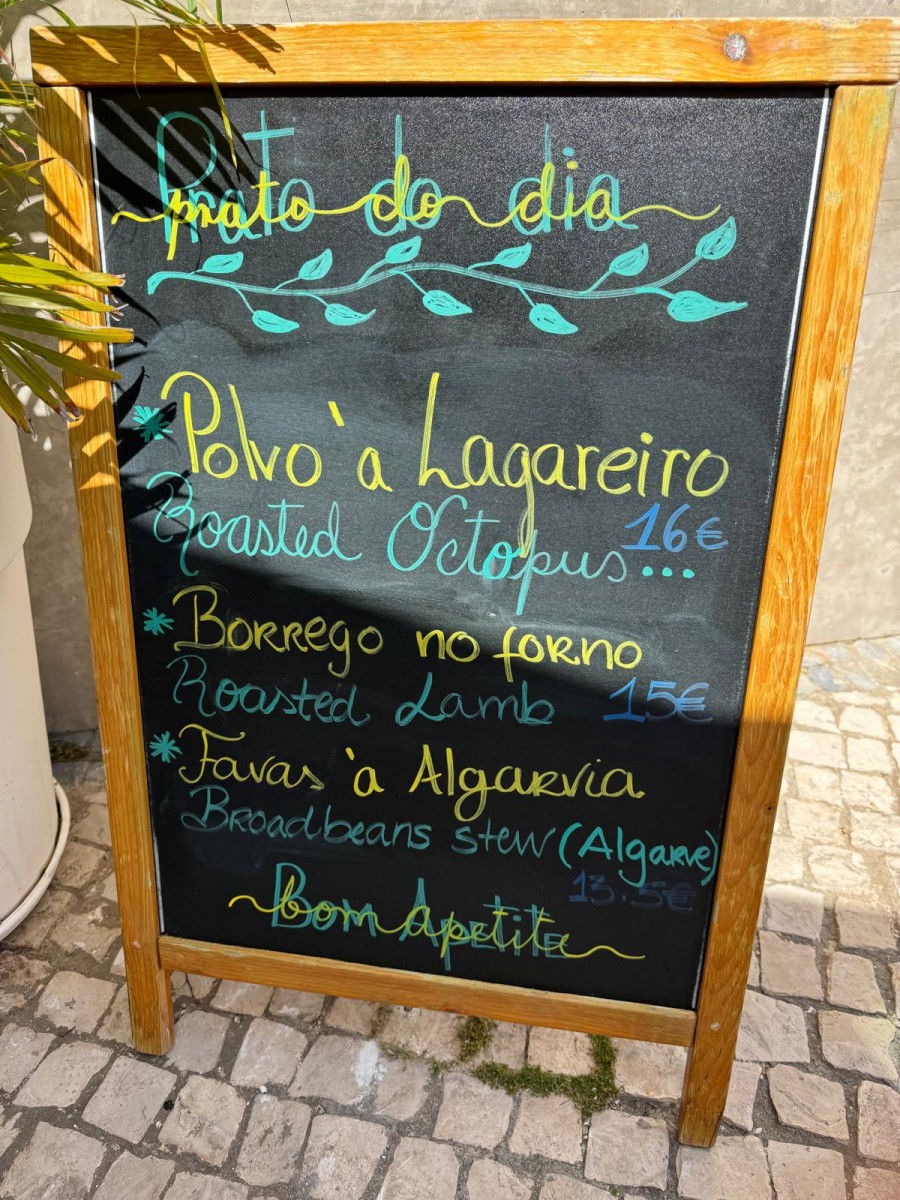 Prato do dia
prato do dia
* Polvo à Lagareiro
Roasted Octopus... 16€
* Borrego no forno
Roasted Lamb 15€
* Favas à Algarvia
Broadbeans stew (Algarve)
13.5€
Bom Apetite
bom apetite